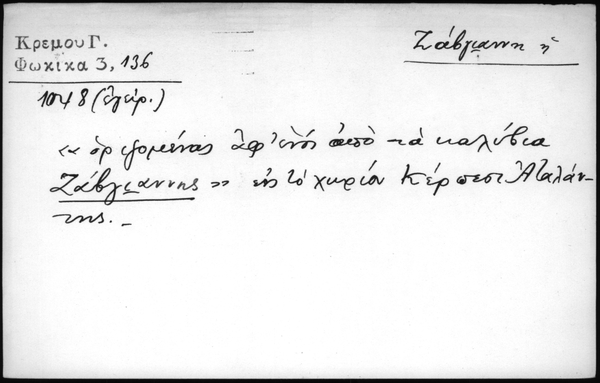 Κρεμου Γ.
Φωκικα 3, 136
Ζάβγιαννη ἡ
1048 (ἔγγρ.)
« ὁριζομένας ἀφ' ἑνός ἀπὸ τὰ καλύβια
Ζάβγιαννης » εἰς τὸ χωρίον Κέρπεσι Ἀταλάν-
της. _